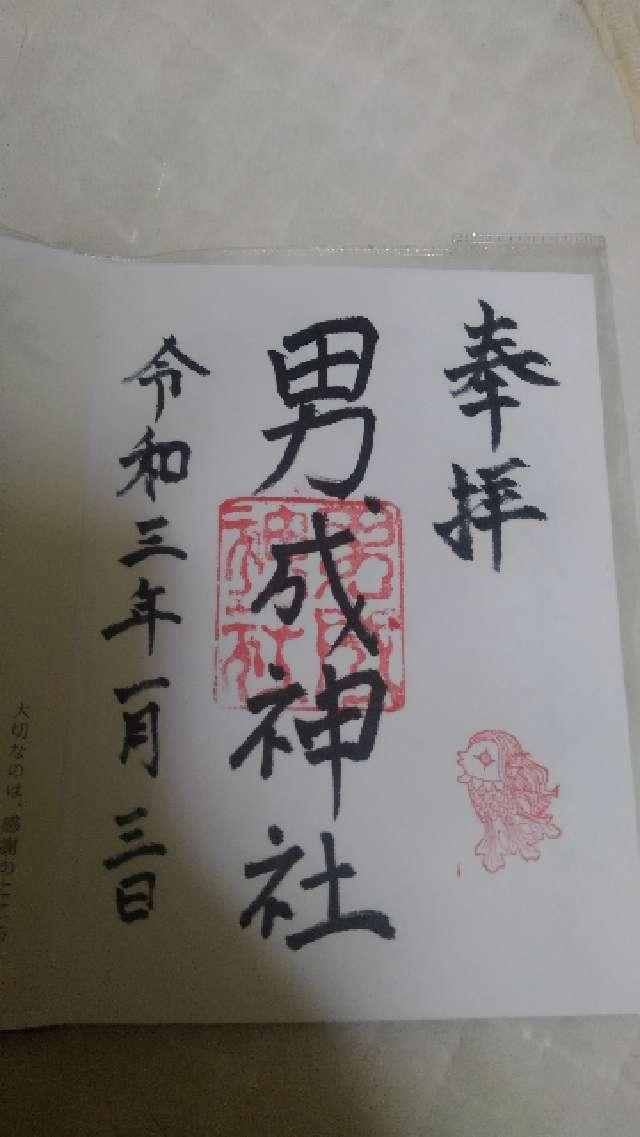 奉拝
男成神社
男成神社
令和三年一月三日
大切なのは、感謝のこころ